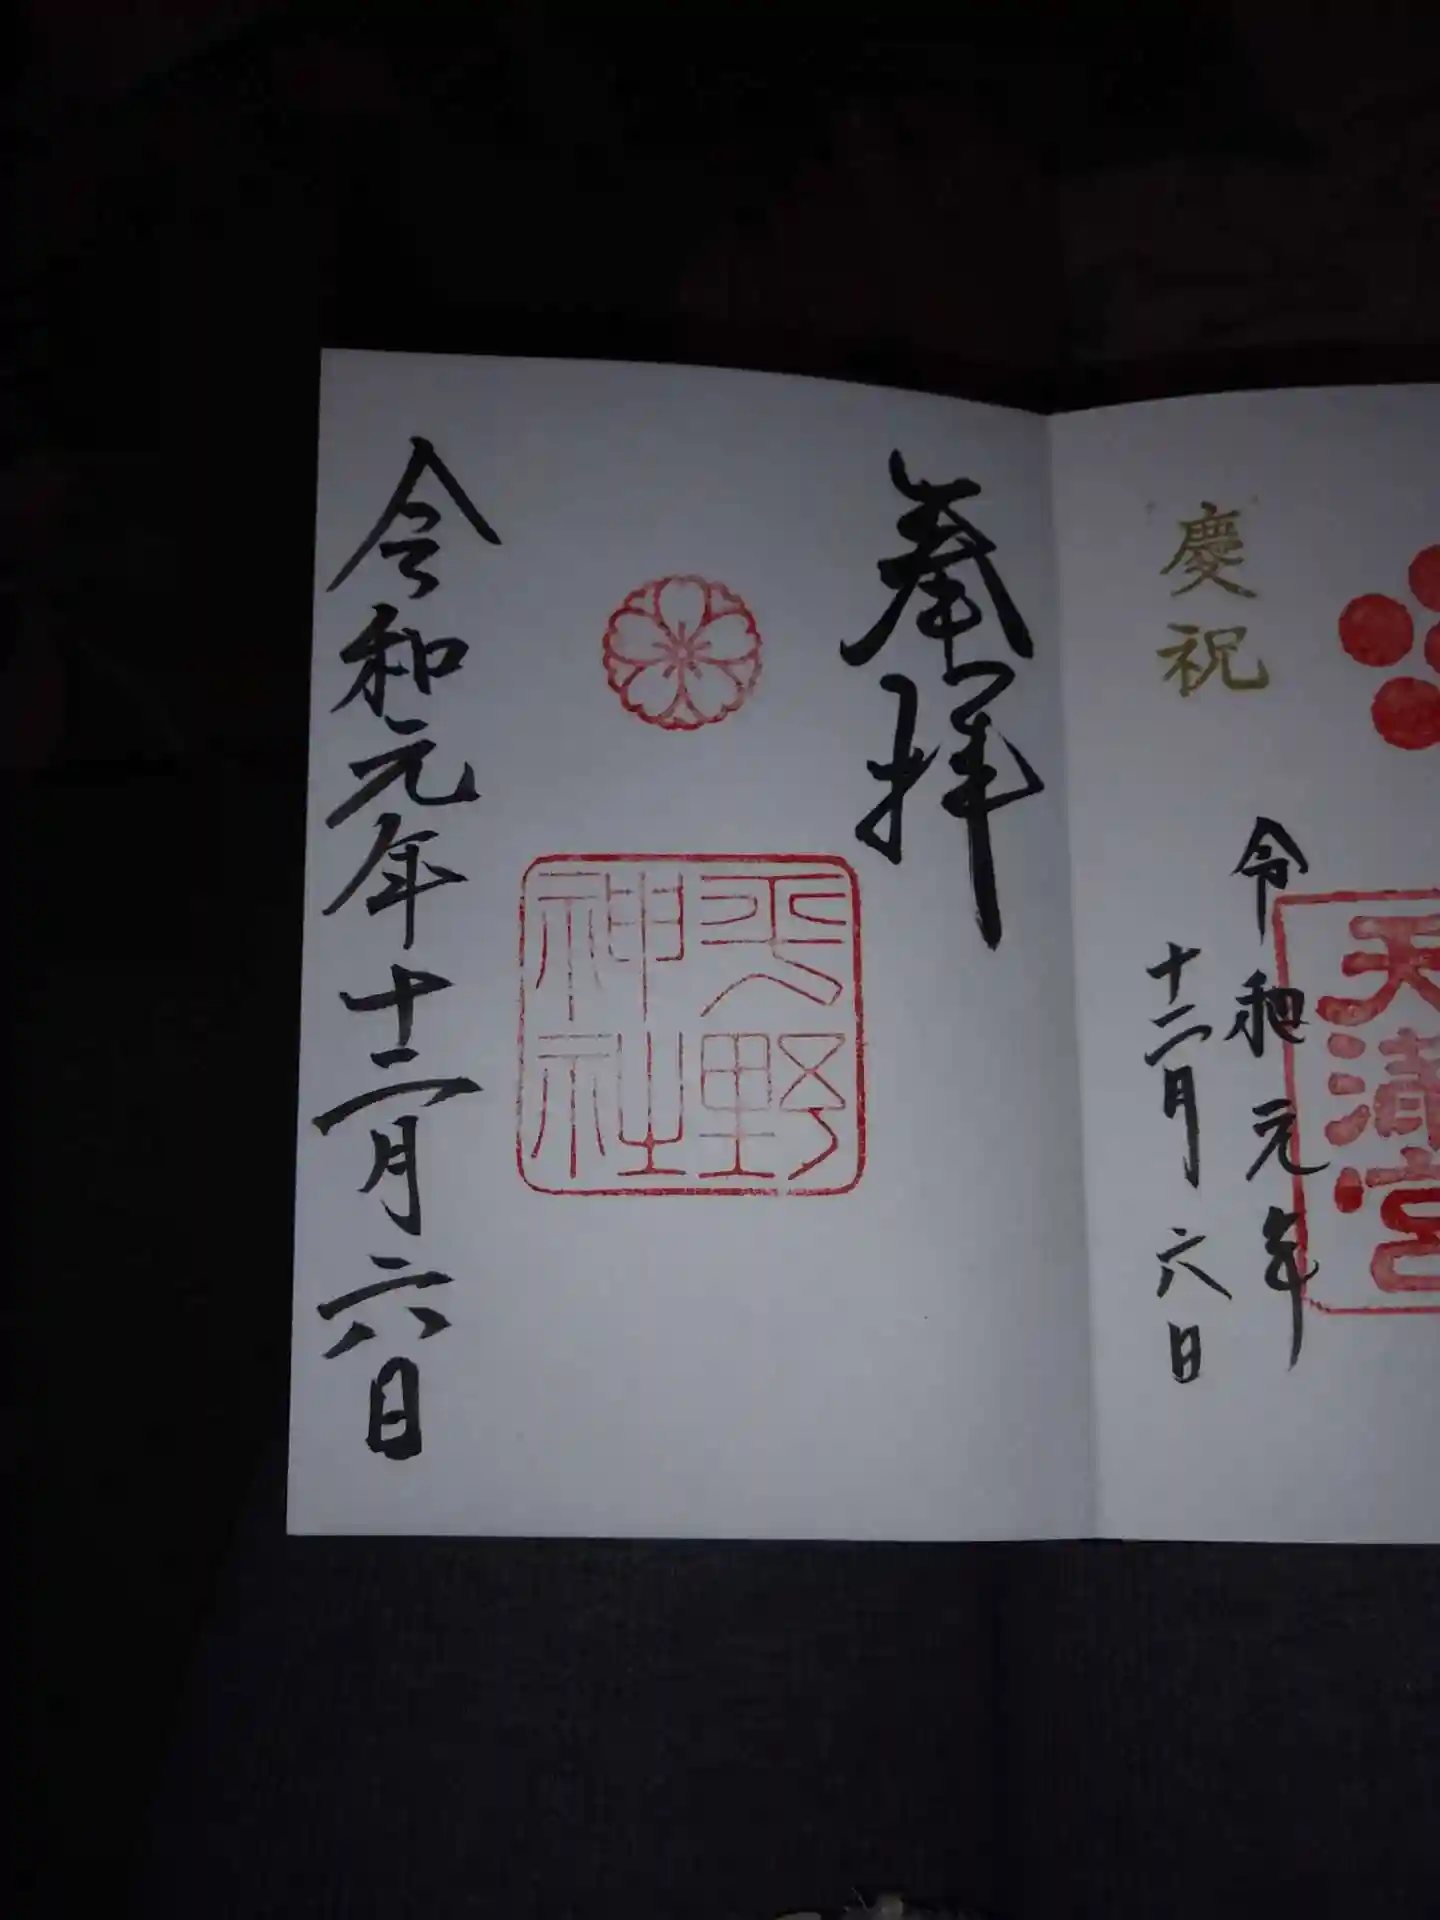 慶祝
令和元年
十二月六日
天満宮
奉拝
平野
神社
令和元年十二月六日